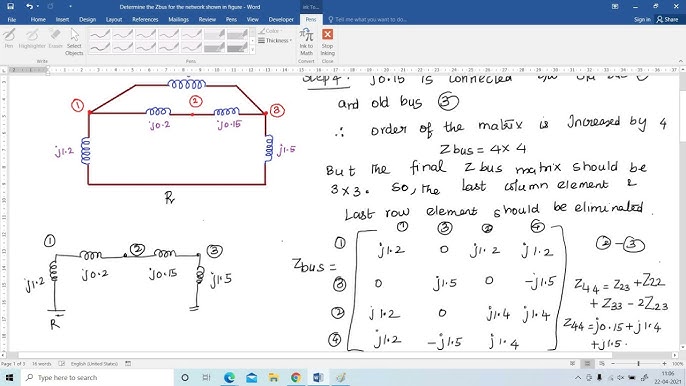 Determine the Zbus for the network shown in figure - Word
Ink To...
File Home Insert Draw Design Layout References Mailings Review View Help Pens Tell me what you want to do
Share
Pen Highlighter Eraser Select Objects
Ink to Math
Stop Inking
Write
Pens
Close
Step 4: j0.15 is connected b/w old bus 2
and old bus ③
∴ order of the matrix is increased by 4
Zbus = 4×4
But the final Zbus matrix should be
3×3. So, the last column element &
Last row element should be eliminated.
① ② ③
j0.2 j0.15
j1.2 j1.5
R
① ② ③
j0.2 j0.15
j1.2 j1.5
R
① ③ ② ④
① j1.2 0 j1.2 j1.2
Zbus =
③ 0 j1.5 0 -j1.5
② j1.2 0 j1.4 j1.4
④ j1.2 -j1.5 j1.4
② - ③
Z44 = Z23 + Z22
+ Z33 - 2Z23
Z44 = j0.15 + j1.4
+ j1.5
Page 1 of 3 16 words English (United States)
100%
Type here to search
11:06
22-04-2021